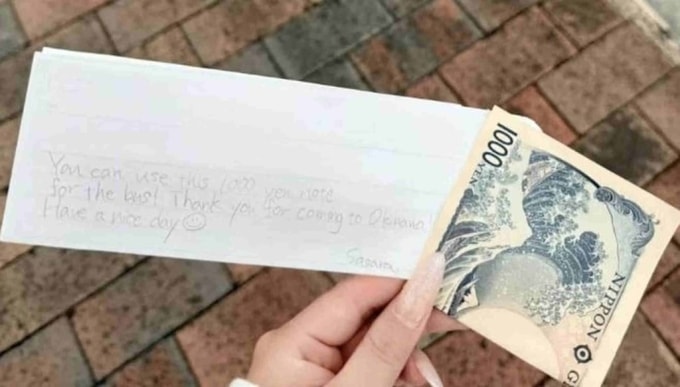 You can use this 1000 yen note
for the bus! Thank you for coming to Okinawa!
Have a nice day☺
1000
YEN
NIPPON
G